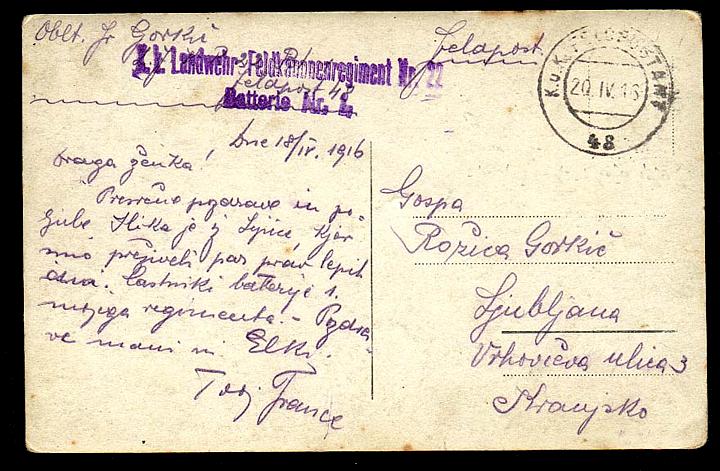 Oblt. Fr Gorkič
K.k. Landwehr-Feldkanonenregiment Nr. 22
Feldpost 48
Batterie Nr. 2.
Feldpost.
K.u.K. FELDPOSTAMT
20. IV. 16
48
Dne 18/IV. 1916
Draga ženka!
Presrčne pozdrave in po-
ljube. Slika je iz kjer
smo preživeli par prav lepih
dni. Častniki batterije 1.
mojega regimenta. – Pozdra-
ve mami in Elki.
Tvoj France
Gospa
Rožica Gorkič
Ljubljana
Vrhovčeva ulica 3
Kranjsko